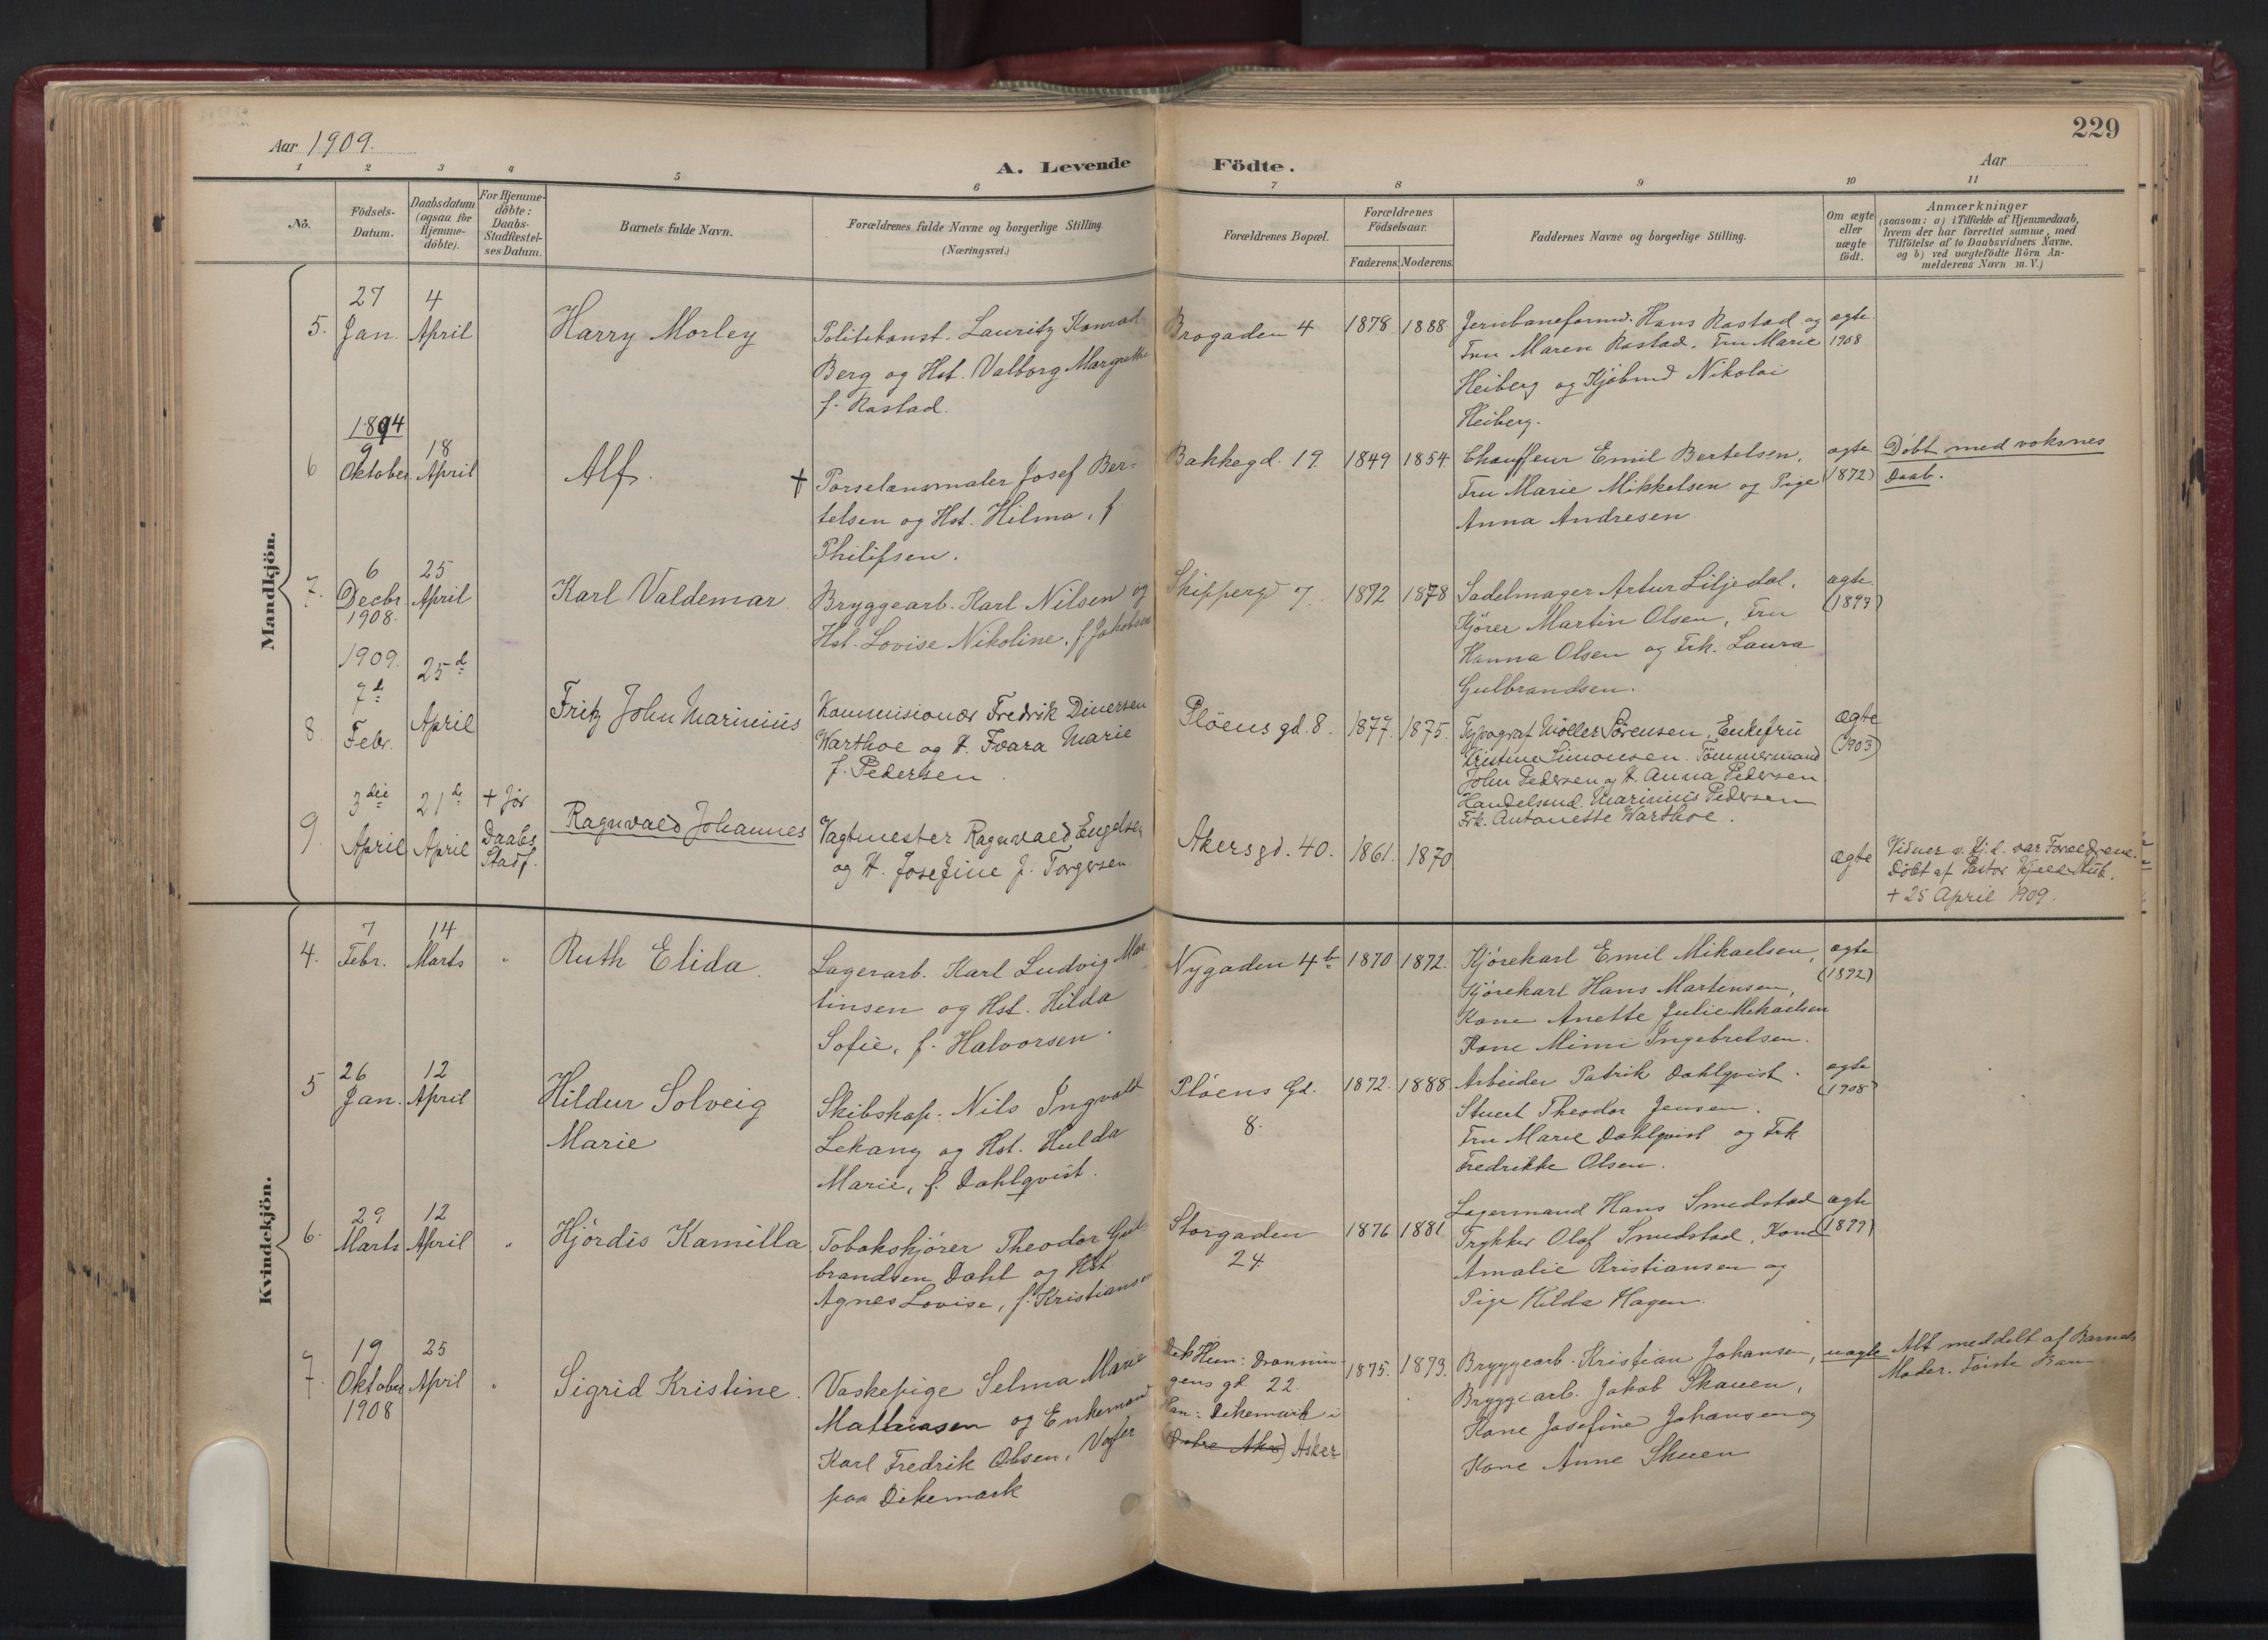 229
Aar 1909.
A. Levende Födte.
Aar
1 2 3 4 5 6 7 8 9 10 11
No.
Födsels-
Datum.
Daabsdatum
(ogsaa for
Hjemme-
döbte).
For Hjemme-
döbte:
Daabs-
Stadfæstel-
ses Datum.
Barnets fulde Navn.
Forældrenes fulde Navne og borgerlige Stilling
(Næringsvei.)
Forældrenes Bopæl.
Forældrenes
Födselsaar.
Faderens. Moderens.
Faddernes Navne og borgerlige Stilling.
Om ægte
eller
uægte
födt.
Anmærkninger
(saasom: a) i Tilfælde af Hjemmedaab,
hvem der har forrettet samme, med
Tilföielse af to Daabsvidners Navne,
og b) ved uægtefödte Börn An-
melderens Navn m. V.)
Mandkjön.
5.
27
Jan.
4
April
Harry Morley
Politikonst. Lauritz Konrad
Berg og Hst. Valborg Margrethe
f. Rastad.
Brogaden 4
1878 1888
Jernbaneformd. Hans Rastad og
Fru Maren Rastad. Fru Marie
Heiberg og Kjöbmd Nikolai
Heiberg.
ægte
1908
6
1894
9
Oktober
18
April
Alf.
† Porselænsmaler Josef Ber-
telsen og Hst. Hilma, f.
Philipsen.
Bakkegd. 19.
1849 1854
Chauffeur Emil Bertelsen,
Fru Marie Mikkelsen og Pige
Anna Andresen
ægte
(1872)
Döbt med voksnes
Daab.
7.
6
Decbr
1908.
25
April
Karl Valdemar
Bryggearb. Karl Nilsen og
Hst. Lovise Nikoline, f. Jakobsen
Skipperg 7.
1872 1878
Sadelmager Artur Liljedal.
Kjörer Martin Olsen, Fru
Hanna Olsen og Frk. Laura
Gulbrandsen.
ægte.
8.
1909.
7de
Febr.
25de
April
Fritz John Marinius
Kommisionær Fredrik Dinersen
Warthoe og H. Fvara Marie
f. Pedersen.
Plöens gd. 8.
1877. 1875.
Typograf Möller Sörensen, Enkefru
Kristine Simonsen. Tömmermand
John Pedersen og H. Anna Pedersen
Handelsmd. Marinius Pedersen
Frk. Antonette Warthoe.
ægte
(1903)
9.
3die
April
21de
April
+ för
Daabs
Stadf.
Ragnvald Johannes
Vagtmester Ragnvald Engelsen
og H. Josefine f. Torgersen.
Akersgd. 40.
1861. 1870
ægte
Vidner v. Hj. d. var Forældrene.
Döbt af Pastor Kjeld Stub.
+ 25 April 1909.
Kvindekjön.
4.
7
Febr.
14
Marts
"
Ruth Elida.
Lagerarb. Karl Ludvig Mar-
tinsen og Hst. Hilda
Sofie, f. Halvorsen.
Nygaden 4b
1870 1872.
Kjörekarl Emil Mikaelsen,
Kjörekarl Hans Martinsen,
Kone Anette Julie Mikaelsen
Kone Mimi Ingebretsen.
ægte
(1892)
5
26
Jan.
12
April
Hildur Solveig
Marie
Skibskap. Nils Ingvald
Lekang og Hst. Hulda
Marie, f. Dahlqvist.
Plöens Gd.
8.
1872. 1888
Arbeider Patrik Dahlqvist.
Stuert Theodor Jensen.
Fru Marie Dahlqvist og Frk
Fredrikke Olsen.
ægte
(1908)
6.
29
Marts
12
April
"
Hjördis Kamilla
Tobakskjörer Theodor Gul-
brandsen Dahl og Hst.
Agnes Lovise, f. Kristiansen
Storgaden
24
1876 1881
Lagermand Hans Smedstad
Trykker Olaf Smedstad, Kone
Amalie Kristiansen og
Pige Hilda Hagen.
ægte
(1899)
7.
19
Oktober
1908
25
April
"
Sigrid Kristine.
Vaskepige Selma Marie
Mathiasen og Enkemand
Karl Fredrik Olsen, Vogter
paa Dikemark
Hun: Dronnin-
gens gd 22.
Han: Dikemark i
Asker
1875. 1873.
Bryggearb. Kristian Johansen,
Bryggearb. Jakob Skauen,
Kone Josefine Johansen og
Kone Anne Skuen
uægte
Alt meddelt af Barnets
Moder. Förste Barn